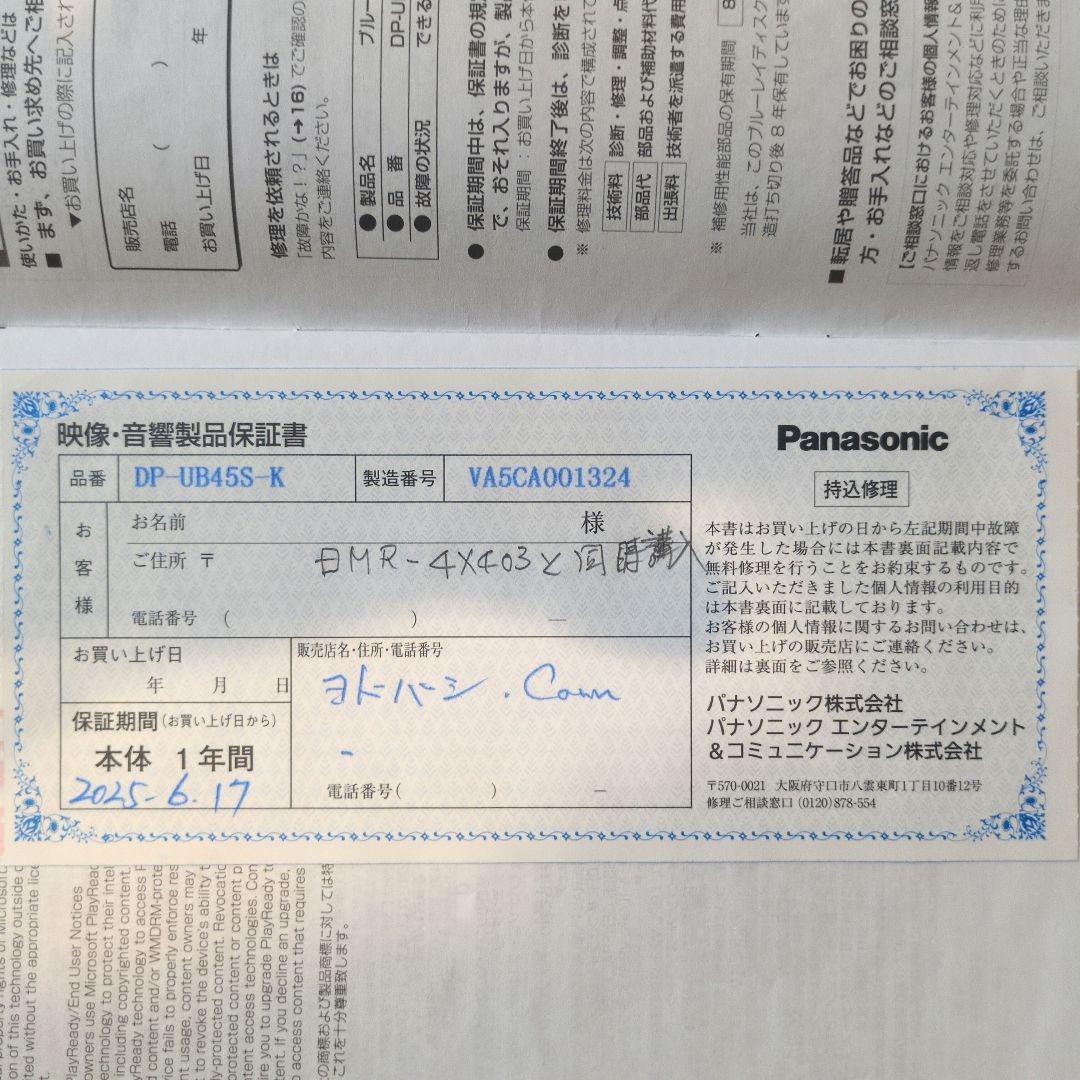 使いかた・お手入れ・修理などは
■まず、お買い求め先へご相
▼お買い上げの際に記入され
販売店名
電話 ( )
お買い上げ日 年
修理を依頼されるときは
「故障かな！？」(➔16)でご確認の
内容をご連絡ください。
●製品名 ブルー
●品 番 DP-U
●故障の状況 できる
●保証期間中は、保証書の規
で、おそれ入りますが、製
保証期間：お買い上げ日から本
●保証期間終了後は、診断を
※修理料金は次の内容で構成されて
技術料 診断・修理・調整・点
部品代 部品および補助材料代
出張料 技術者を派遣する費用
※補修用性能部品の保有期間 8
当社は、このブルーレイディスク
造打ち切り後 8 年保有しています
■転居や贈答品などでお困りの
方・お手入れなどのご相談窓
【ご相談窓口におけるお客様の個人情報
パナソニック エンターテインメント&
情報をご相談対応や修理対応などに利
返し電話をさせていただくときのため
修理業務等を委託する場合や正当な理由
するお問い合わせは、ご相談いただきま
映像・音響製品保証書
Panasonic
品番 DP-UB45S-K 製造番号 VA5CA001324
持込修理
お客様
お名前 様
ご住所 〒
DMR-4X403と同時購入
電話番号 ( ) —
お買い上げ日
年 月 日
販売店名・住所・電話番号
ヨドバーシ.Com
保証期間(お買い上げ日から)
本体 1年間
2025-6.17
電話番号( ) —
本書はお買い上げの日から左記期間中故障
が発生した場合には本書裏面記載内容で
無料修理を行うことをお約束するものです。
ご記入いただきました個人情報の利用目的
は本書裏面に記載しております。
お客様の個人情報に関するお問い合わせは、
お買い上げの販売店にご連絡ください。
詳細は裏面をご参照ください。
パナソニック株式会社
パナソニック エンターテインメント
&コミュニケーション株式会社
〒570-0021 大阪府守口市八雲東町1丁目10番12号
修理ご相談窓口 (0120)878-554
property rights of Microsoft.
on of this technology outside
ted without the appropriate lice
t.
PlayReady/End User Notices
owners use Microsoft PlayRead
echnology to protect their intel
including copyrighted content.
yReady technology to access P
d content and/or WMDRM-prote
vice fails to properly enforce res
nt usage, content owners may
to revoke the device's ability t
y-protected content. Revocatic
protected content or content p
ntent access technologies. Con
ire you to upgrade PlayReady to
tent. If you decline an upgrade,
o access content that requires
の商標および製品商標に対しては特
これを十分尊重致します。